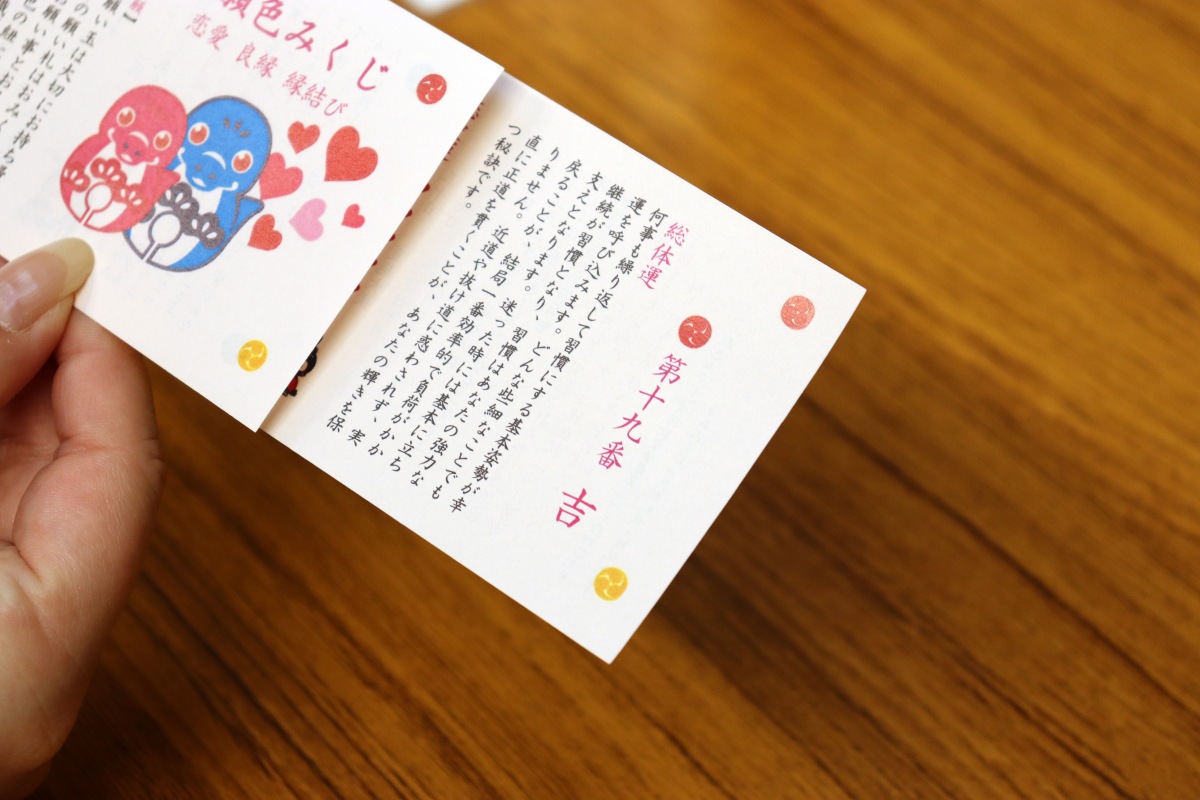 願色みくじ
恋愛 良縁 縁結び
願い玉は大切にお持ち
の願い札はおみく
第十九番 吉
総体運
何事も繰り返して習慣にする基本姿勢が幸
運を呼び込みます。どんな些細なことでも
継続が習慣となり、習慣はあなたの強力な
支えとなります。迷った時には基本に立ち
戻ることが、結局一番効率的で負荷がかか
りません。近道や抜け道に惑わされず、実
直に正道を貫くことが、あなたの輝きを保
つ秘訣です。